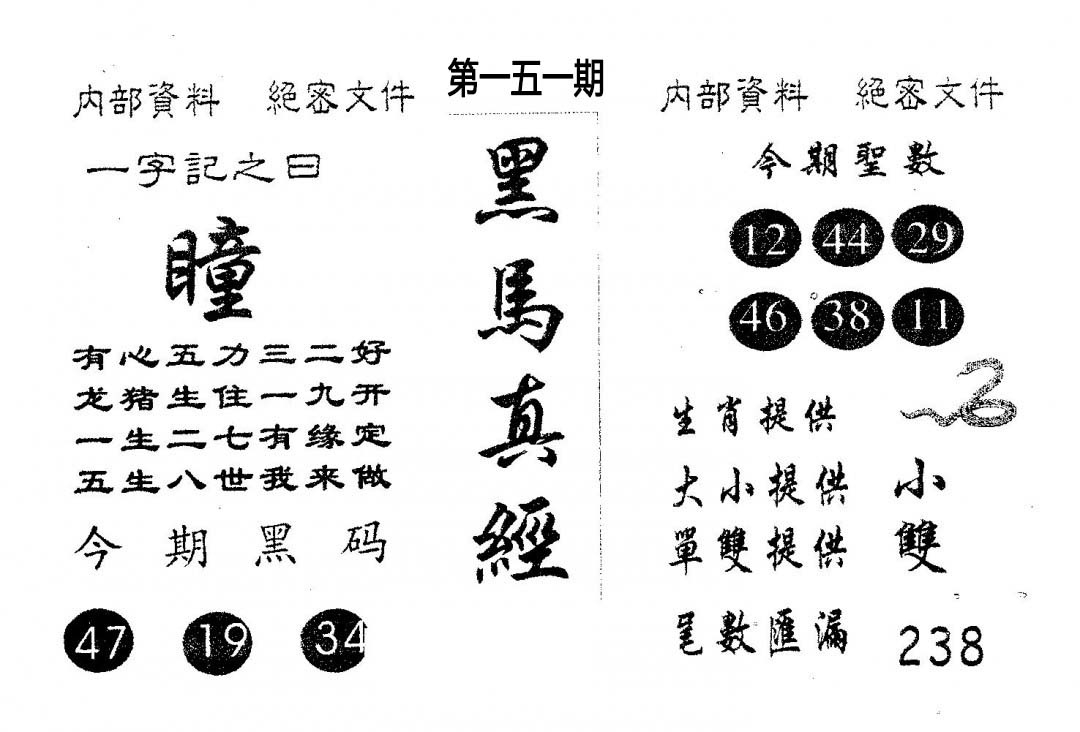 第一五一期
內部資料 絕密文件
一字記之曰
瞳
有心五力三二好
龙猪生住一九开
一生二七有缘定
五生八世我来做
今期黑码
47 19 34
黑馬真經
內部資料 絕密文件
今期聖數
12 44 29
46 38 11
生肖提供
大小提供 小
單雙提供 雙
尾數匯漏 238